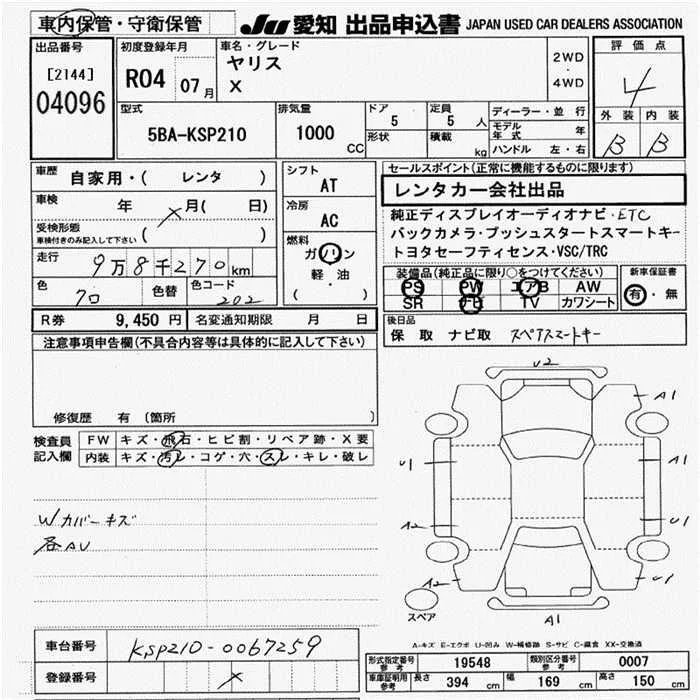 車内保管・守衛保管
JU 愛知 出品申込書 JAPAN USED CAR DEALERS ASSOCIATION
出品番号
[2144]
04096
初度登録年月
R04 07月
車名・グレード
ヤリス
X
2WD
・
4WD
評価点
4
外装 内装
B B
型式
5BA-KSP210
排気量
1000 CC
ドア
5
形状
定員
5 人
積載
kg
ディーラー・並行
モデル年式 年
ハンドル 左・右
車歴
自家用・( レンタ )
車検
年 X 月( 日)
受検形態
車検付きのみ記入して下さい ( )
走行
9万8千270km
色
クロ
色替
色コード
202
シフト
AT
冷房
AC
燃料
ガソリン
軽・油
( )
セールスポイント(正常に機能するものに限ります)
レンタカー会社出品
純正ディスプレイオーディオナビ・ETC
バックカメラ・プッシュスタートスマートキー
トヨタセーフティセンス・VSC/TRC
装備品(純正品に限り○をつけてください)
PS PW エアB AW
SR ナビ TV カワシート
新車保証書
有・無
R券 9,450円 名変通知期限 月 日
後日品
保 取 ナビ取 スペアスマートキー
注意事項申告欄(不具合内容等は具体的に記入して下さい)
修復歴 有 (箇所 )
検査員記入欄
FW キズ・飛石・ヒビ割・リペア跡・X要
内装 キズ・汚レ・コゲ・穴・スレ・キレ・破レ
Wカバーキズ
各AU
U2
A1
U1
A1
A2
U1
A2
U1
スペア
A1
A-キズ E-エクボ U-凹み W-補修跡 S-サビ C-腐食 XX-交換済
車台番号
KSP210-0067259
登録番号
X
形式指定番号参考 19548
類別区分番号参考 0007
車庫証明用参考 長さ 394 cm 幅 169 cm 高さ 150 cm